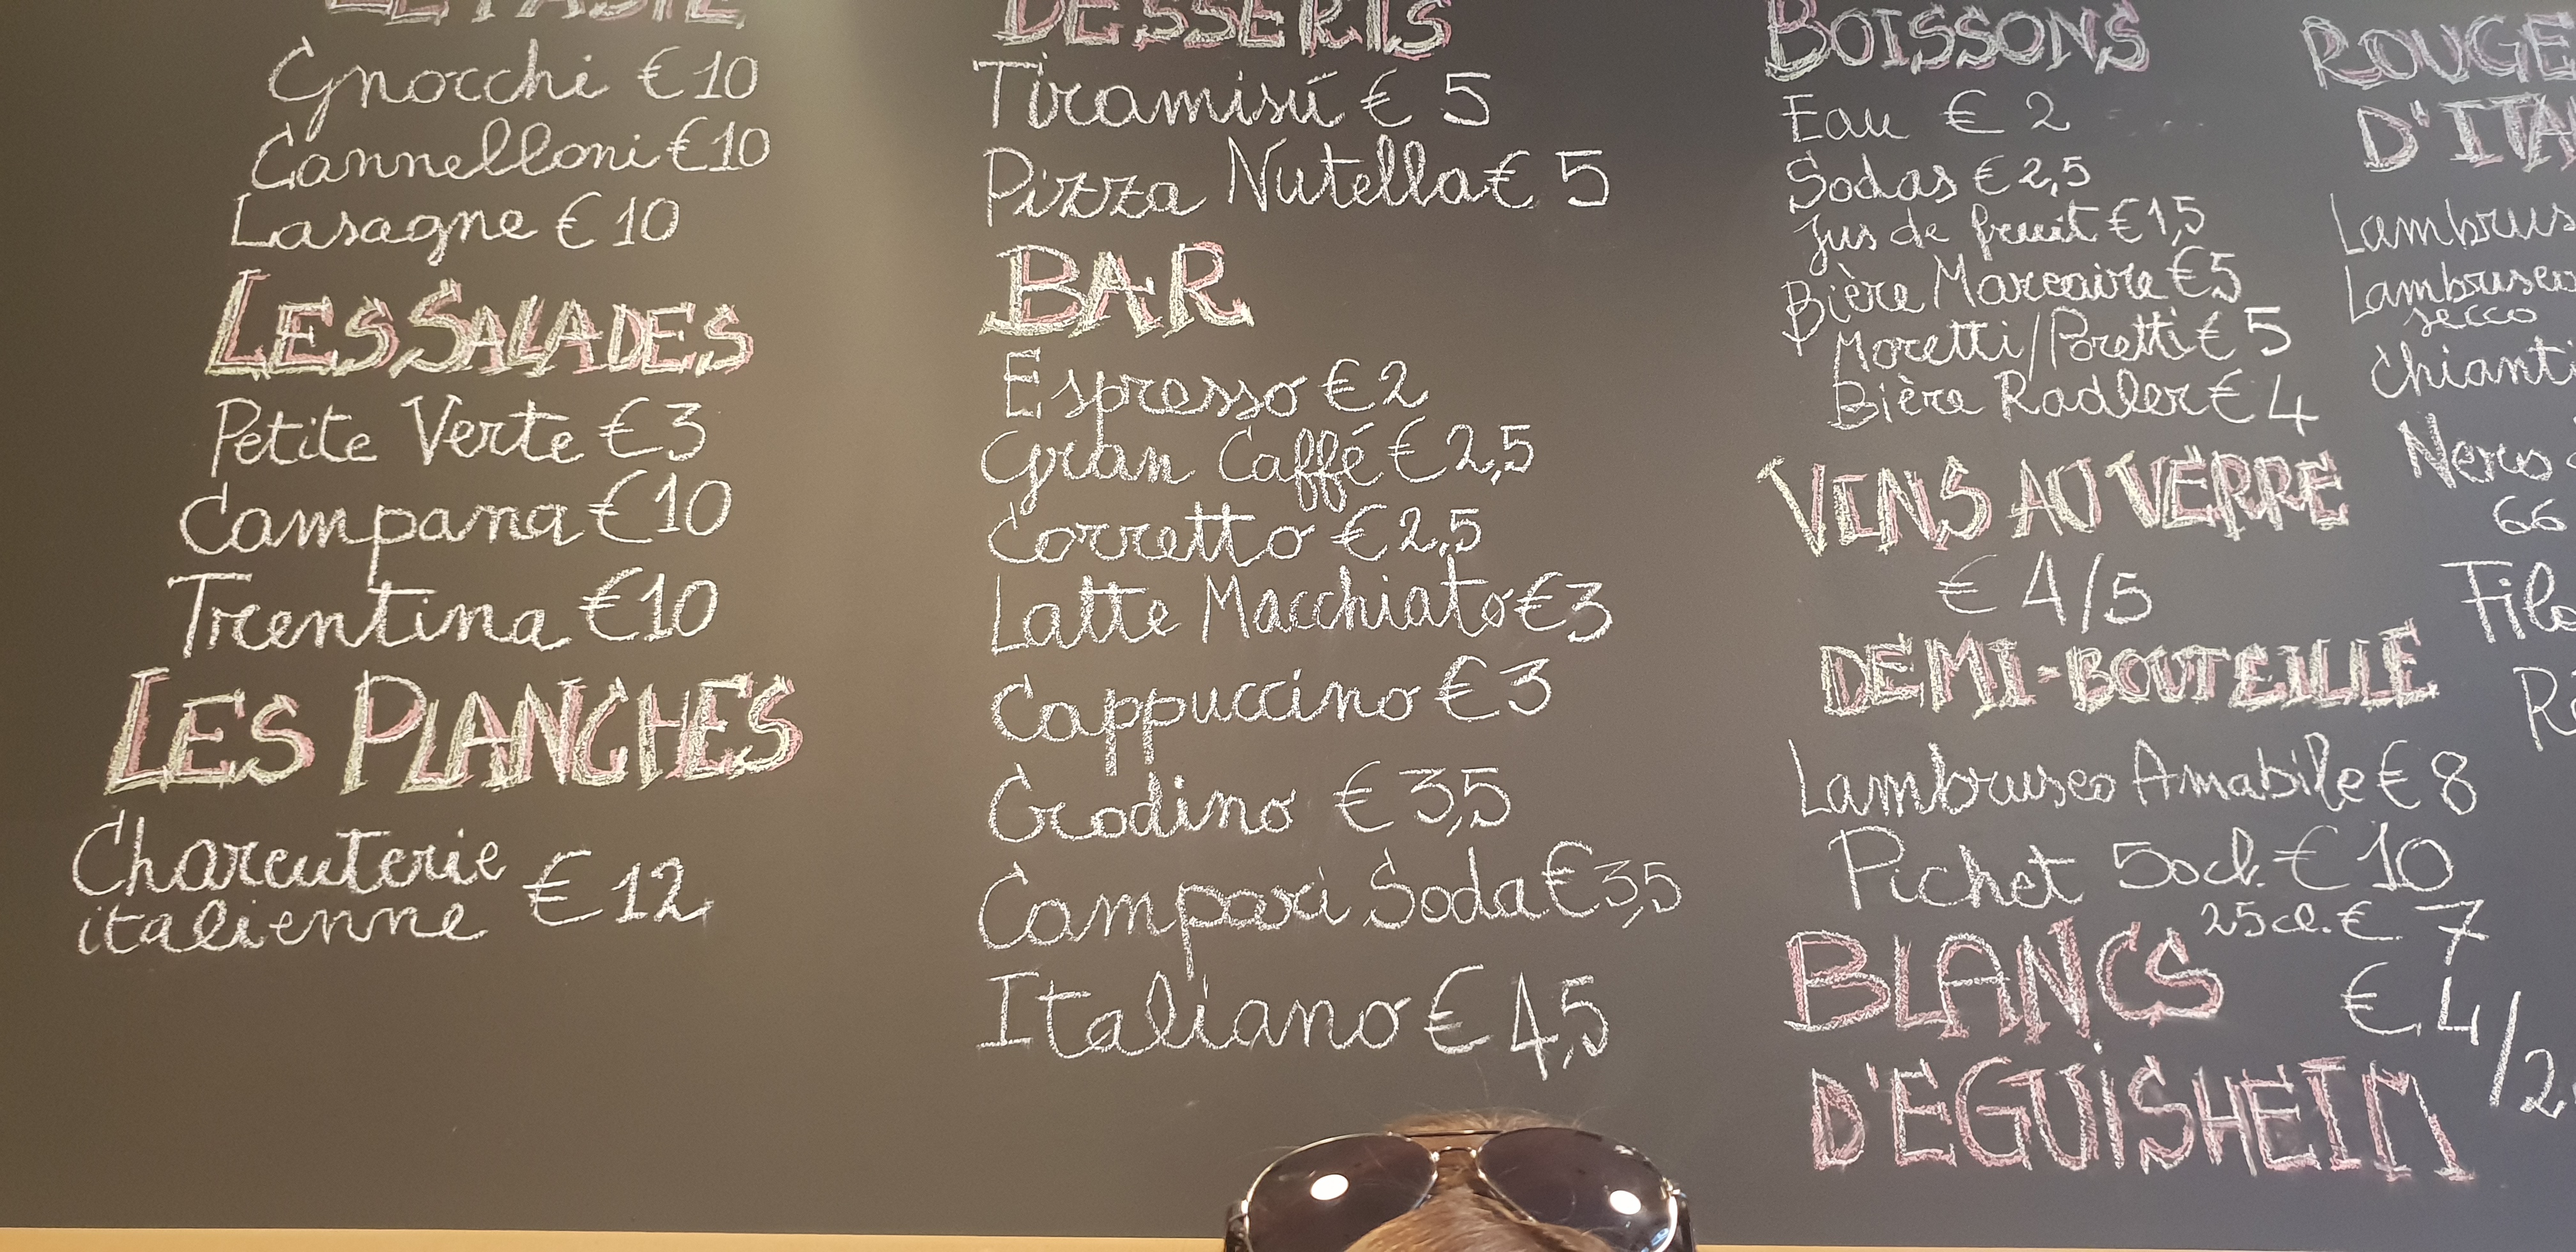 LE PASTE
Gnocchi €10
Cannelloni €10
Lasagne €10
LES SALADES
Petite Verte €3
Campana €10
Trentina €10
LES PLANCHES
Charcuterie
italienne €12
DESSERTS
Tiramisú € 5
Pizza Nutella € 5
BAR
Espresso €2
Gran Caffé €2,5
Corretto €2,5
Latte Macchiato €3
Cappuccino €3
Crodino €3,5
Campari Soda €3,5
Italiano €4,5
BOISSONS
Eau € 2
Sodas €2,5
Jus de fruit €1,5
Bière Marcaire €5
Moretti/Poretti € 5
Bière Radler € 4
VINS AU VERRE
€ 4/5
DEMI-BOUTEILLE
Lambrusco Amabile € 8
Pichet 50cl. € 10
25cl. € 7
BLANCS € 4/2
D'EGUISHEIM
ROUGE
D'ITA
Lambrus
Lambrusco
secco
Chianti
Nero
66
Filo